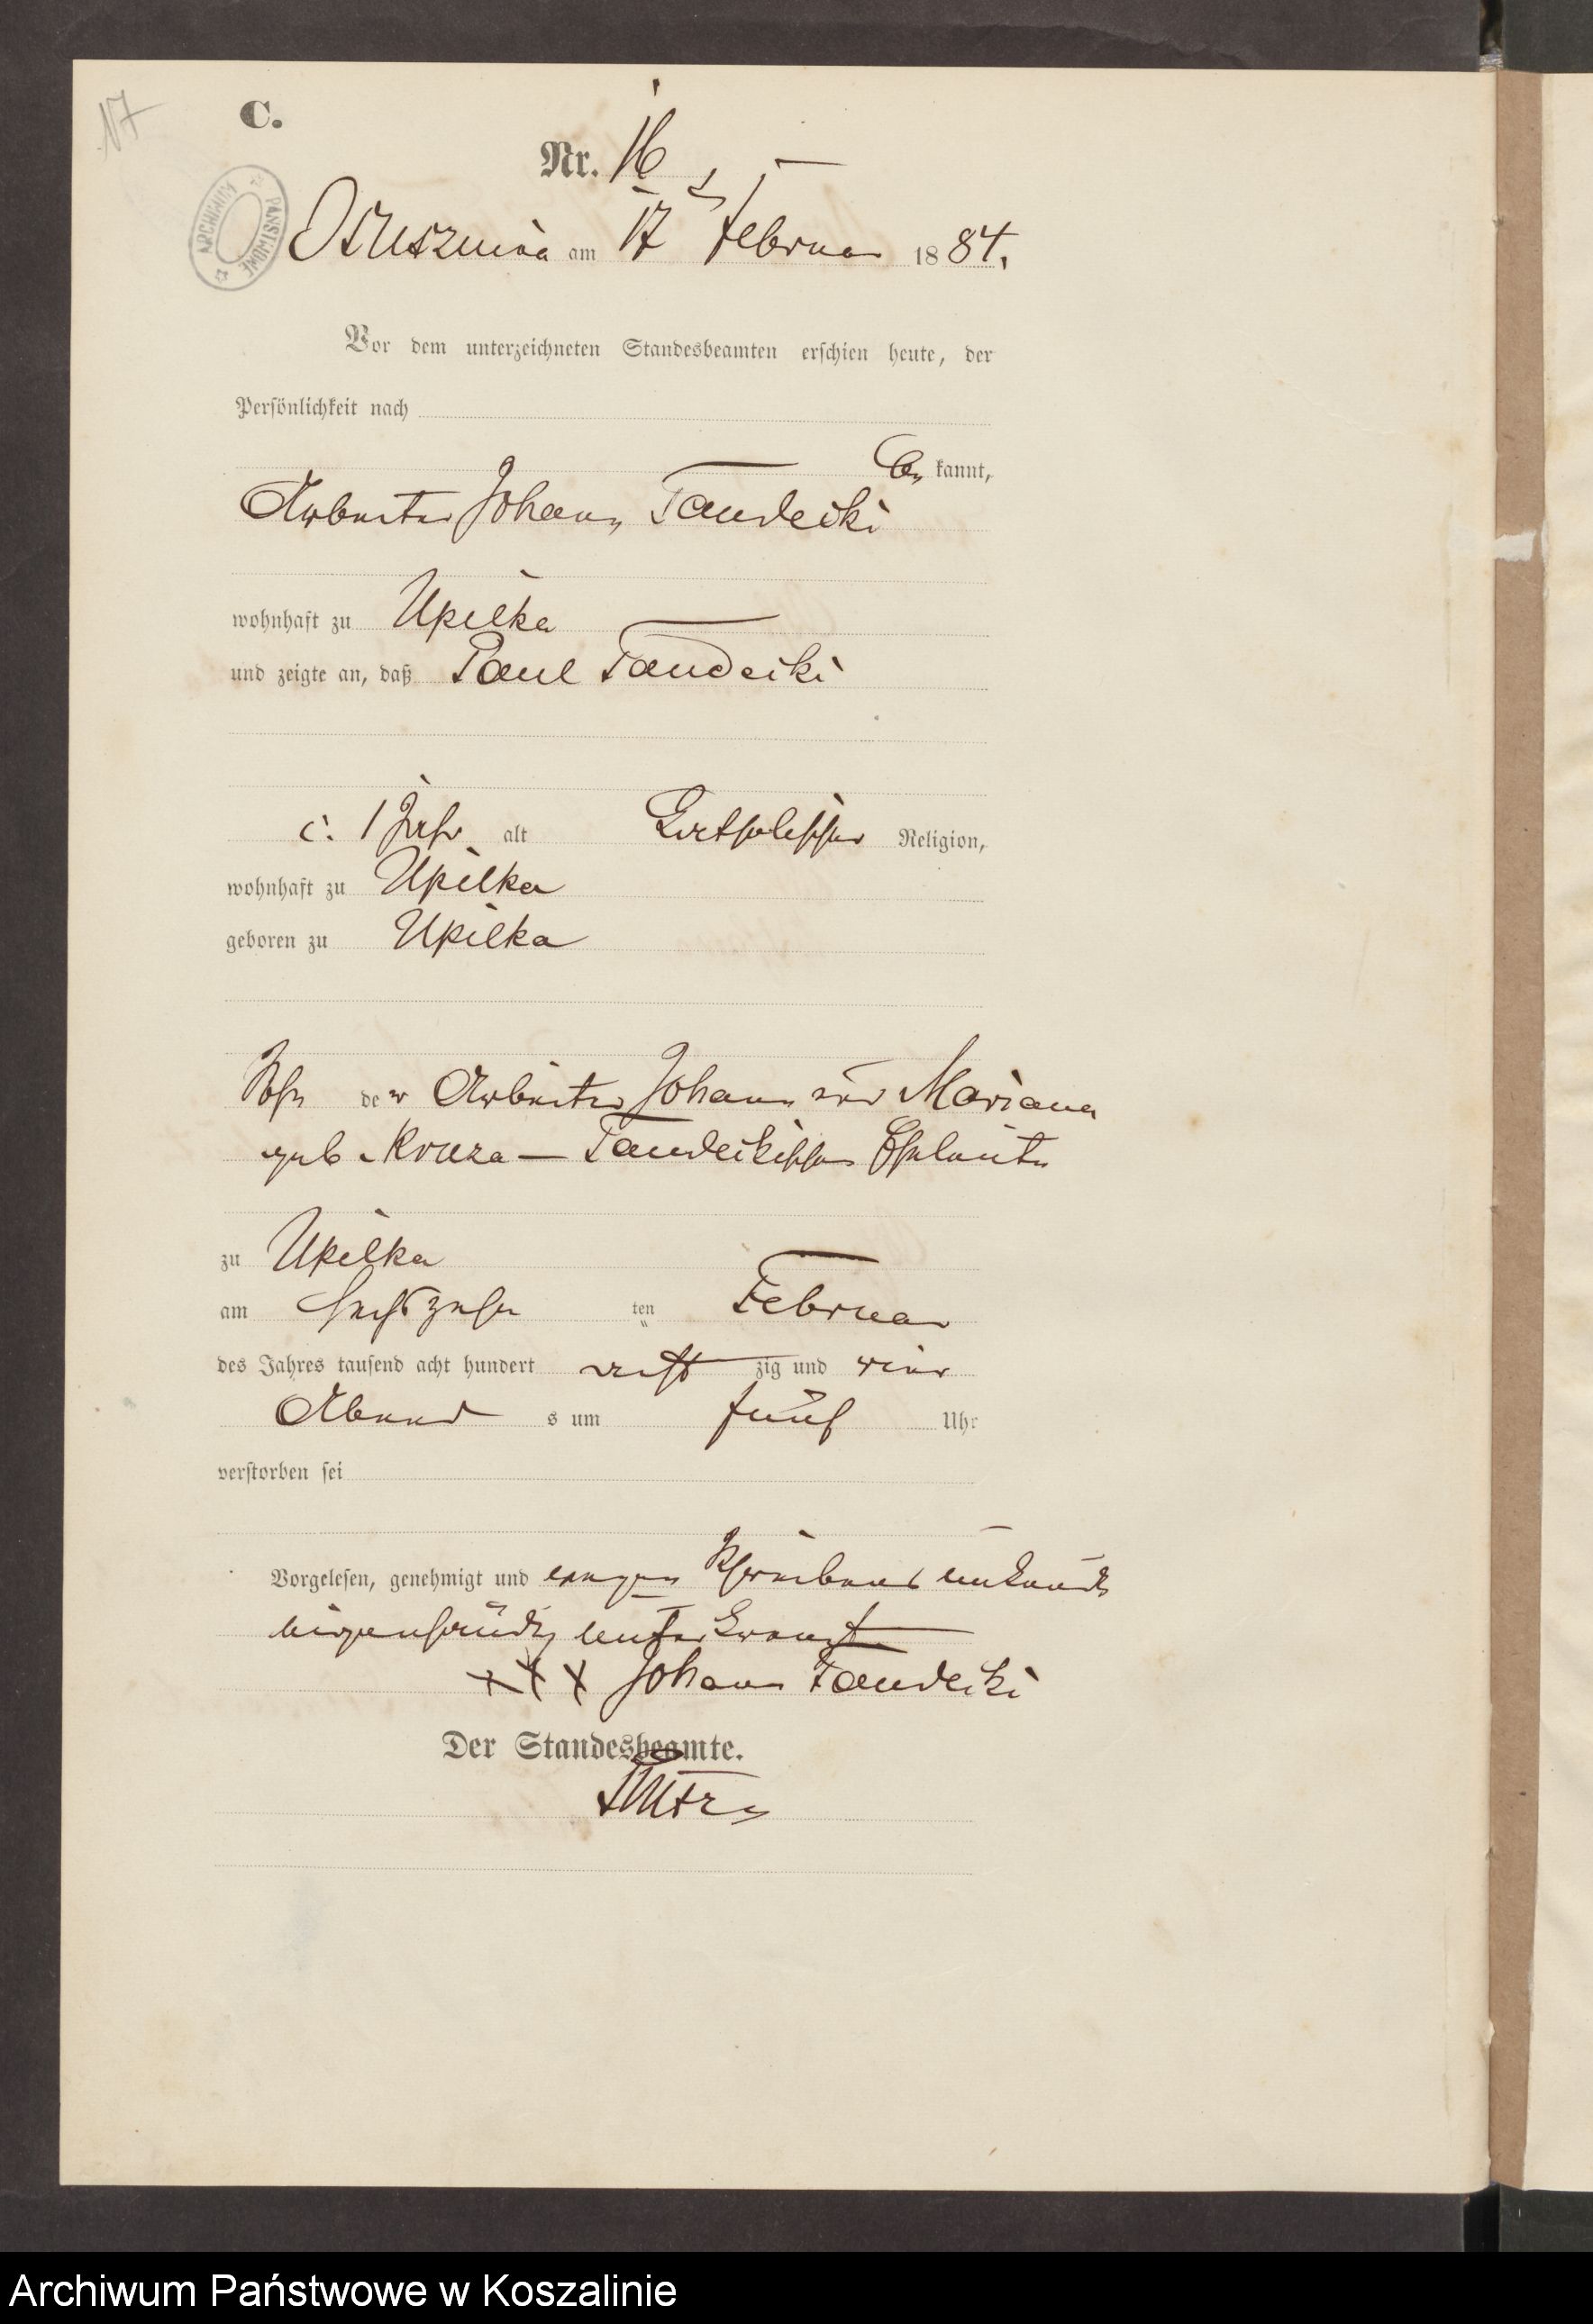 17
C.
Nr. 16
ARCHIWUM PAŃSTWOWE
am 17 Februar 1884.
Vor dem unterzeichneten Standesbeamten erschien heute, der
Persönlichkeit nach
be kannt,
Arbeiter Johann Tandecki
wohnhaft zu Upilka
und zeigte an, daß Paul Tandecki
c. 1 Jahr alt Katholischer Religion,
wohnhaft zu Upilka
geboren zu Upilka
Sohn der Arbeiter Johann und Mariana
geb. Tandeckischen Eheleute
zu Upilka
am sechszehn ten Februar
des Jahres tausend acht hundert acht zig und vier
Abend s um fünf Uhr
verstorben sei
Vorgelesen, genehmigt und wegen Schreibens unkunde
eigenhändig unterkreuzt
+++ Johann Tandecki
Der Standesbeamte.
Archiwum Państwowe w Koszalinie